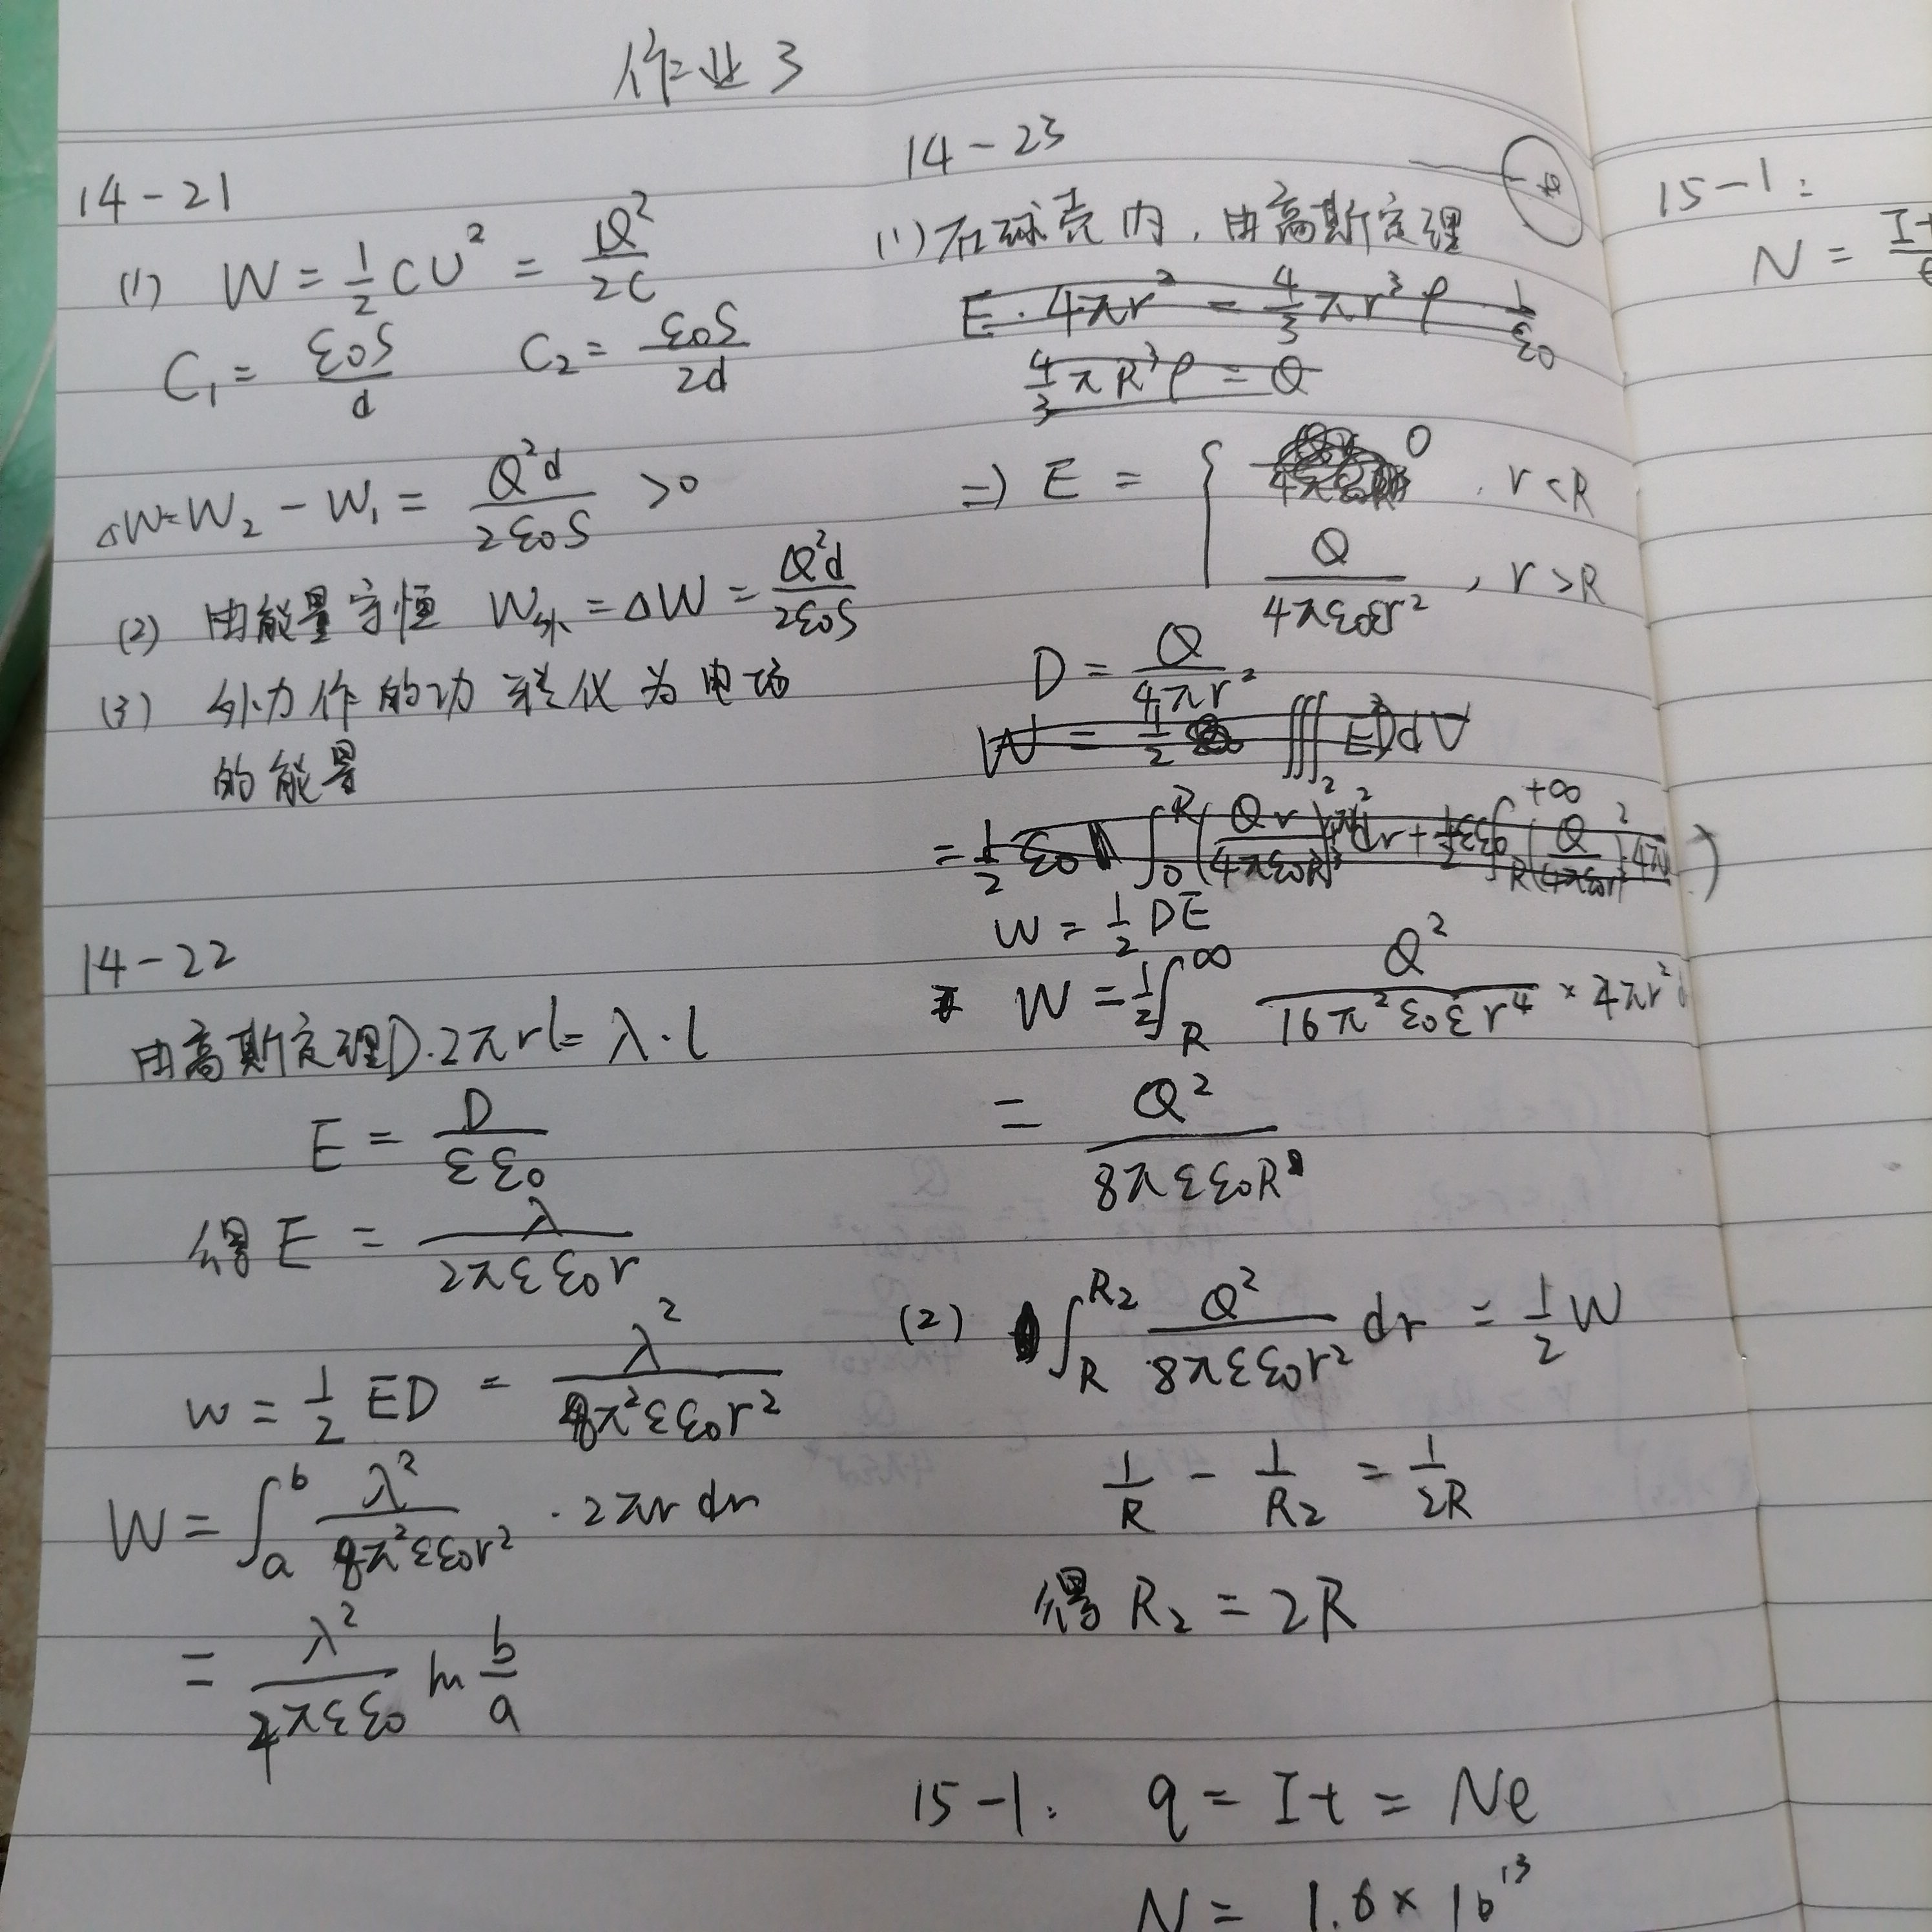 作业3
14-21
(1) W = 1/2 CU² = Q²/2C
C₁ = ε₀S/d C₂ = ε₀S/2d
ΔW = W₂ - W₁ = Q²d/2ε₀S >0
(2) 由能量守恒 W外 = ΔW = Q²d/2ε₀S
(3) 外力作的功转化为电场
的能量
14-22
由高斯定理D·2πrl = λ·l
E = D/εε₀
得 E = λ/2πεε₀r
w = 1/2 ED = λ²/8π²εε₀r²
W = ∫ₐᵇ λ²/8π²εε₀r² · 2πr dr
= λ²/4πεε₀ ln b/a
14-23
(1) 在球壳内，由高斯定理
E·4πr² = 4/3 πr³ρ 1/ε₀
4/3 πR³ρ = Q
⇒ E = { 0 , r<R
Q/4πε₀εr² , r>R
D = Q/4πr²
W = 1/2 ∭ EDdV
w = 1/2 DE
W = 1/2 ∫_R^∞ Q²/16π²ε₀εr⁴ × 4πr²
= Q²/8πεε₀R
(2) ∫_R^R₂ Q²/8πεε₀r² dr = 1/2 W
1/R - 1/R₂ = 1/2R
得 R₂ = 2R
15-1: q = It = Ne
N = 1.6×10¹³
15-1:
N =